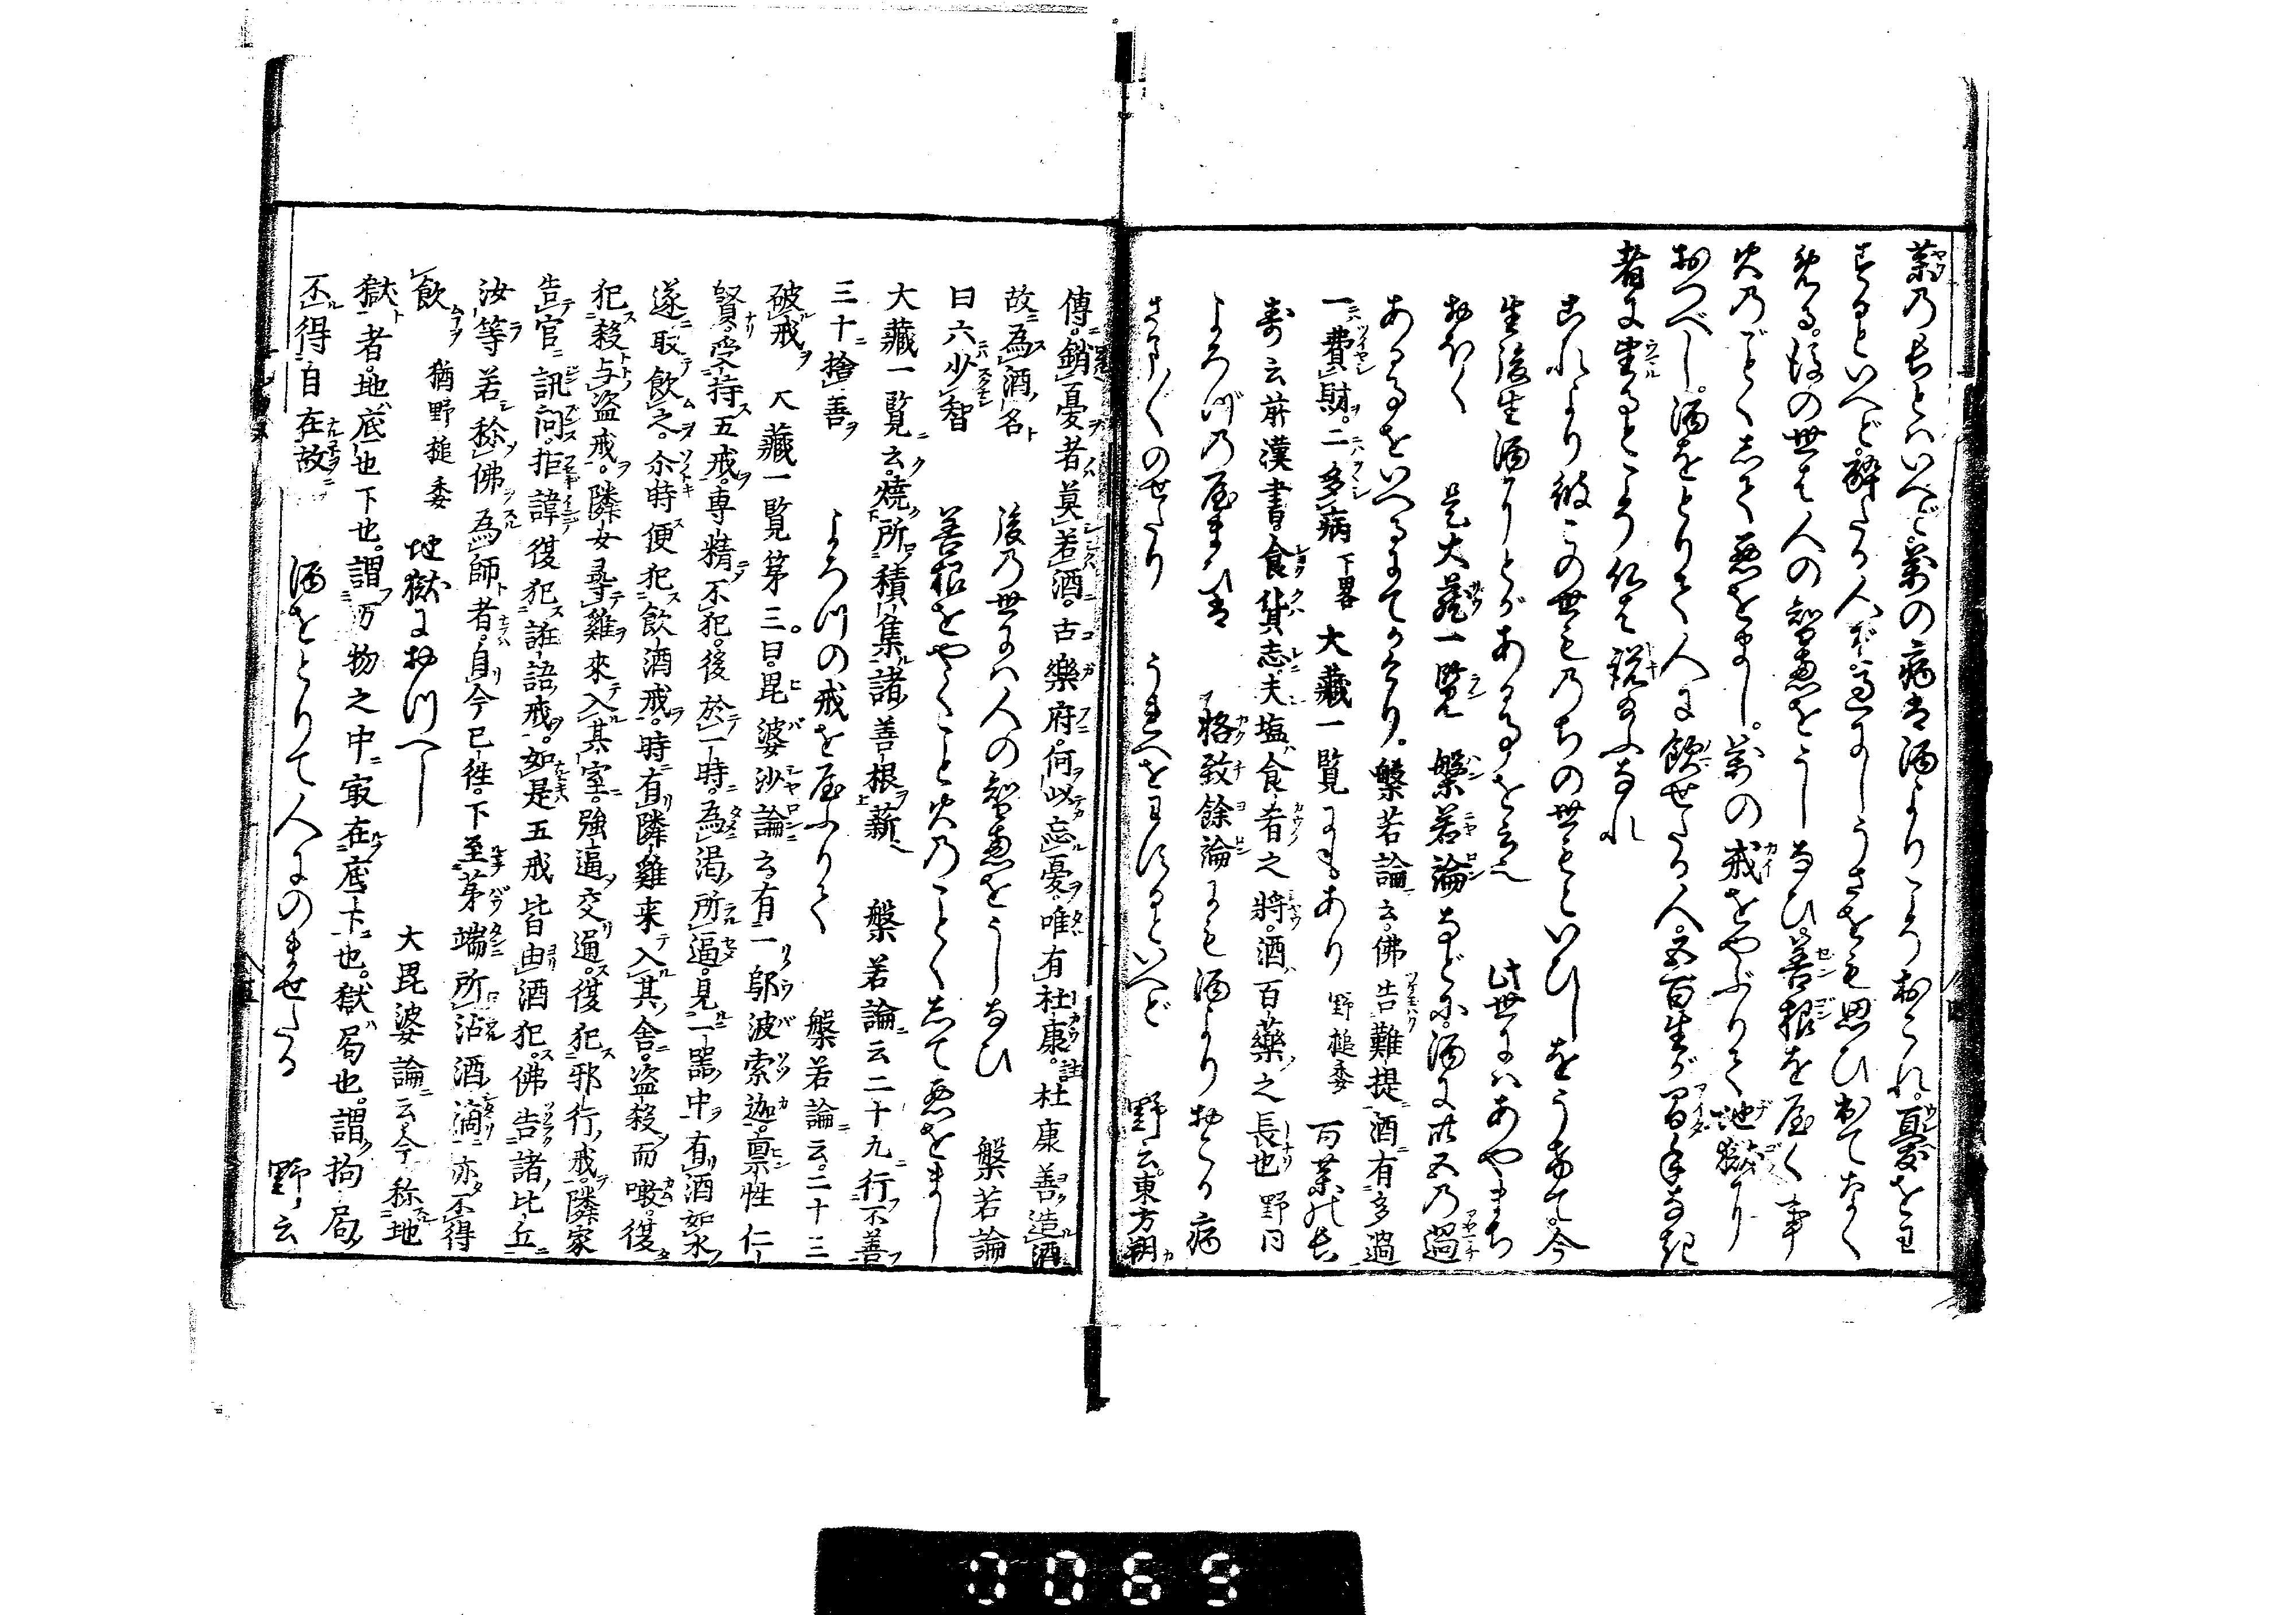 薬の長とはいへど萬の病は酒よりこそおこれ憂をわ
するといへど酔たる人ぞ過にしうさをも思ひ出てなく
める後の世は人の智恵をうしなひ善根を屋く事
火のごとくして悪をまし萬の戒をやぶりて地獄に
おつべし酒をとりて人に飲せたる人五百生が間手なき
者に生るとこそ仏は説給ふなれ
これより彼この世も乃ちの世もといひしをうけて今
生後生酒にとがある事を云也 此世にはあやまち
おほく 是大蔵一覧槃若論などに酒に卅五乃過
ある事をいへるにてかけり槃若論云佛告難提酒有多過
一費財二多病下畧大藏一覧にもあり野槌委 百薬の長
寿云前漢書食貨志夫塩食肴之將酒百藥之長也野同
よろづの病は 格致餘論にも酒よりおこる病
さま〴〵のせたり うれへをわするといへど 野云東方朔
傳銷憂者莫若酒古樂府何以忘憂唯有杜康註杜康善造酒
故為酒名 後の世には人の智恵をうしなひ 槃若論
曰六少智 善根をやくこと火のことくして悪をまし
大藏一覧云燒所積集諸善根薪 槃若論云二十九行不善
三十捨善 よろづの戒を屋ふりて 槃若論云二十三
破戒 大藏一覧第三曰毘婆沙論云有一鄔波索迦禀性仁
賢受持五戒專精不犯後於一時為渇所逼見一器中有酒如水
遂取飲之尒時便犯飲酒戒時有隣雞来入其舎盗殺而噉復
犯殺与盗戒隣女尋雞來入其室強逼交通復犯邪行戒隣家
告官訊問拒諱復犯誑語戒如是五戒皆由酒犯佛告諸比丘
汝等若称佛為師者自今已徃下至茅端所沾酒滴亦不得
飲 猶野槌委 地獄におつへし 大毘婆論云今称地
獄者地底也下也謂万物之中最在底下也獄局也謂拘局
不得自在故 酒をとりて人にのませたる 野云